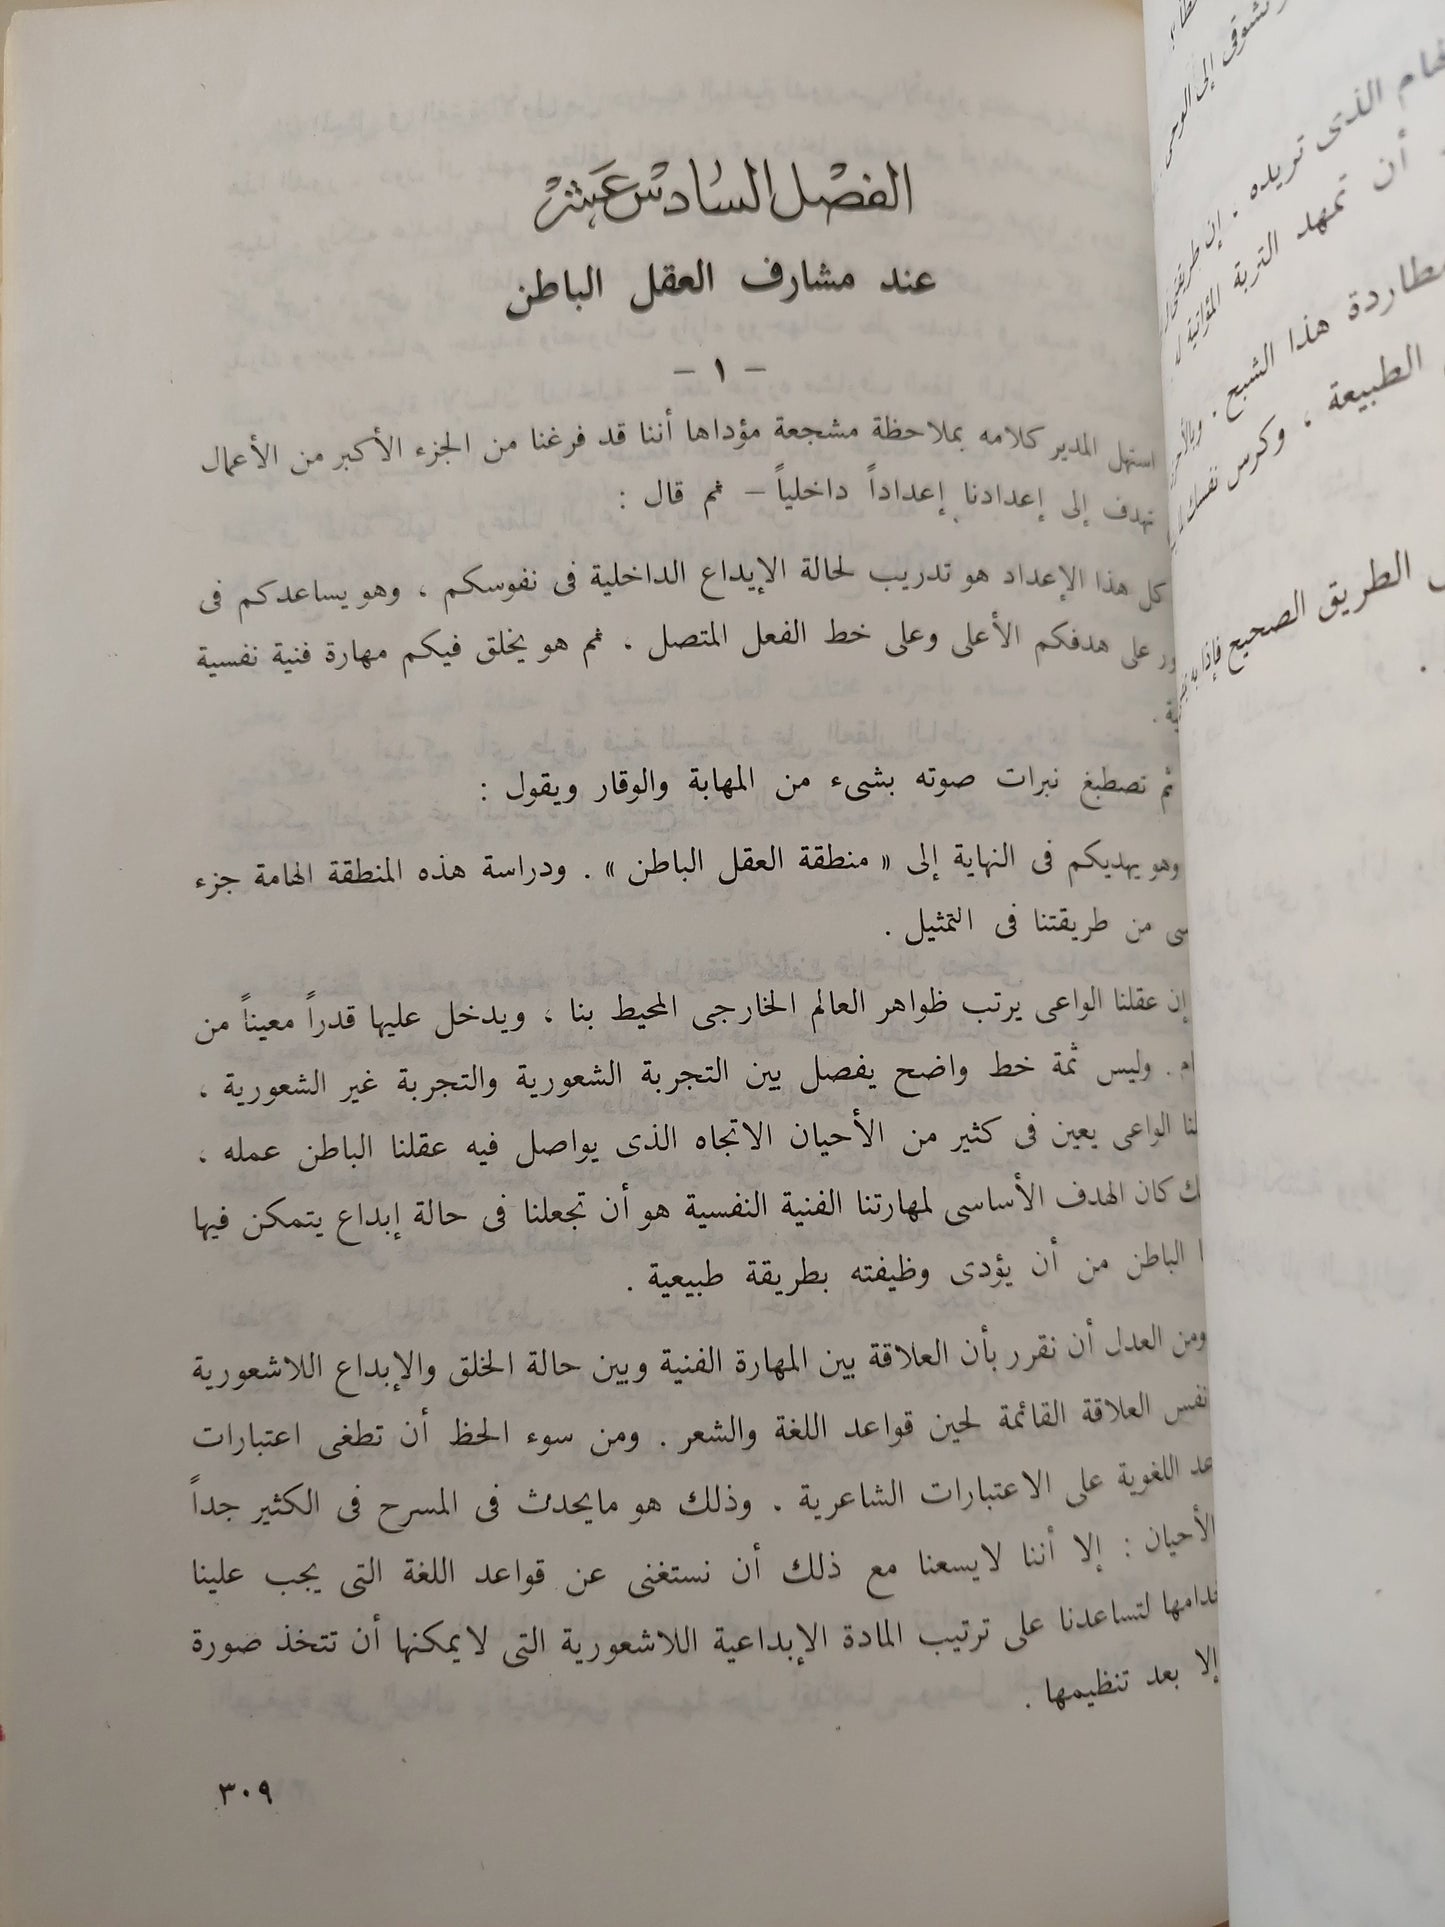 الفصل السادس عشر
عند مشارف العقل الباطن
– ١ –
استهل المدير كلامه بملاحظة مشجعة مؤداها أننا قد فرغنا من الجزء الأكبر من الأعمال
تهدف إلى إعدادنا إعداداً داخلياً – ثم قال :
كل هذا الإعداد هو تدريب لحالة الإيداع الداخلية فى نفوسكم ، وهو يساعدكم فى
على هدفكم الأعلى وعلى خط الفعل المتصل ، ثم هو يخلق فيكم مهارة فنية نفسية
ثم تصطبغ نبرات صوته بشىء من المهابة والوقار ويقول :
وهو يهديكم فى النهاية إلى « منطقة العقل الباطن » . ودراسة هذه المنطقة الهامة جزء
من طريقتنا فى التمثيل .
إن عقلنا الواعى يرتب ظواهر العالم الخارجى المحيط بنا ، ويدخل عليها قدراً معيناً من
. وليس ثمة خط واضح يفصل بين التجربة الشعورية والتجربة غير الشعورية ،
الواعى يعين فى كثير من الأحيان الاتجاه الذى يواصل فيه عقلنا الباطن عمله ،
كان الهدف الأساسى لمهارتنا الفنية النفسية هو أن تجعلنا فى حالة إبداع يتمكن فيها
الباطن من أن يؤدى وظيفته بطريقة طبيعية .
ومن العدل أن نقرر بأن العلاقة بين المهارة الفنية وبين حالة الخلق والإبداع اللاشعورية
نفس العلاقة القائمة لحين قواعد اللغة والشعر . ومن سوء الحظ أن تطغى اعتبارات
اللغوية على الاعتبارات الشاعرية . وذلك هو مايحدث فى المسرح فى الكثير جداً
الأحيان : إلا أننا لايسعنا مع ذلك أن نستغنى عن قواعد اللغة التى يجب علينا
لتساعدنا على ترتيب المادة الإبداعية اللاشعورية التى لايمكنها أن تتخذ صورة
إلا بعد تنظيمها .
٣٠٩
إلى الوحى
الذى تريده . إن
أن تمهد التربة المؤاتية
هذا الشبح .
الطبيعة ، وكرس نفسك
الطريق الصحيح فإذا